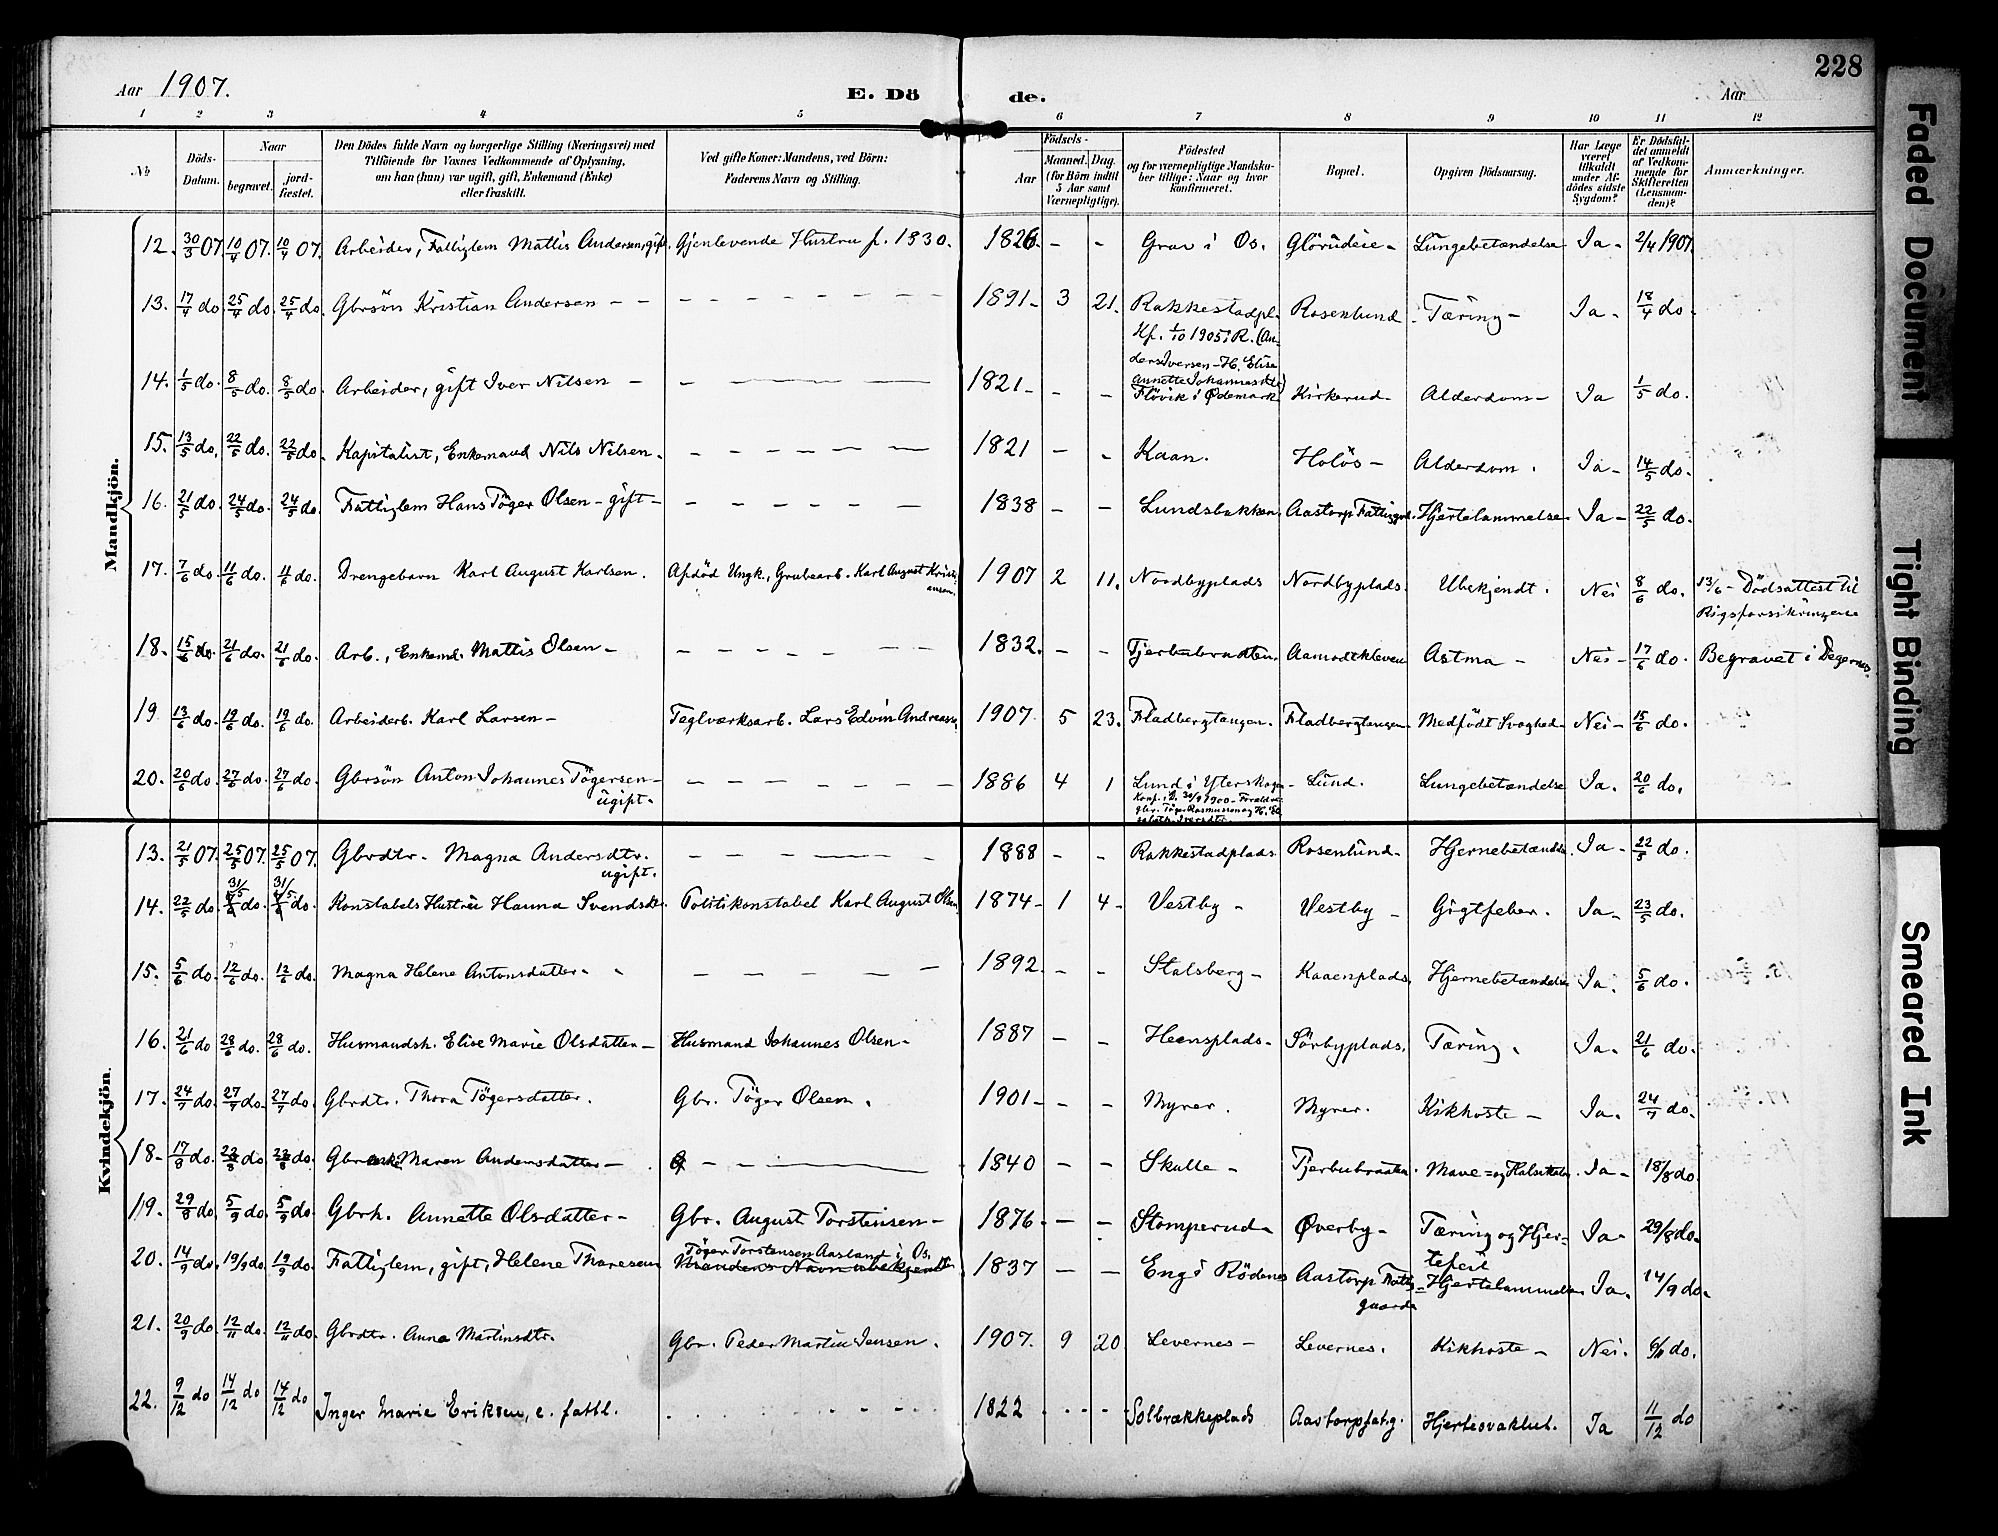 Aar 1907. E. Dö de. Aar 228
1 2 3 4 5 6 7 8 9 10 11 12
No Döds-Datum. Naar begravet. jord-fæstet. Den Dödes fulde Navn og borgerlige Stilling (Næringsvei) med Tilföiende for Voxnes Vedkommende af Oplysning, om han (hun) var ugift, gift, Enkemand (Enke) eller fraskilt. Ved gifte Koner: Mandens, ved Börn: Faderens Navn og Stilling. Födsels- Aar Maaned. Dag. (for Börn indtil 5 Aar samt Værnepligtige). Födested og for værnepligtige Mandskaber tillige: Naar og hvor konfirmeret. Bopæl. Opgiven Dödsaarsag. Har Læge været tilkaldt under Afdödes sidste Sygdom? Er Dödsfaldet anmeldt af Vedkommende for Skifteretten (Lensmanden)? Anmærkninger.
Mandkjön.
12. 30/3 07. 10/4 07. 10/4 07. Arbeider, Fattiglem Mattis Andersen, gift. Gjenlevende Hustru f. 1830. 1826. - - Grav i Os. Glörudeie - Lungebetændelse Ja - 2/4 1907.
13. 17/4 do. 25/4 do. 25/4 do. Gbrsön Kristian Andersen - - - - - 1891 - 3 21. Rakkestadpl. Rosenlund - Tæring - Ja - 18/4 do.
Kf. 1/10 1905 i R. (An-
ders Iversen - H. Elise
Annette Johannesdtr)
14. 1/5 do. 8/5 do. 8/5 do. Arbeider, gift Iver Nilsen - - - - 1821 - - - Flövik i Ødemark Kirkerud - Alderdom - Ja 1/5 do.
15. 13/5 do. 22/5 do. 22/5 do. Kapitalist, Enkemand Nils Nilsen. - - - 1821 - - Kaan. Holös - Alderdom. Ja - 14/5 do.
16. 21/5 do. 24/5 do. 24/5 do. Fattiglem Hans Töger Olsen - gift - - - - 1838 - - Lundsbakken. Aastorp Fattiggrd. Hjertelammelse Ja - 22/5 do.
17. 7/6 do. 11/6 do. 11/6 do. Drengebarn Karl August Karlsen. Afdöd Ungk., Grubearb. Karl August Kristi-
ansen. 1907 2 11. Nordbyplads Nordbyplads. Ubekjendt. Nei 8/6 do. 13/6 - Dödsattest til
Rigsforsikringen
18. 15/6 do. 21/6 do. 21/6 do. Arb., Enkemd. Mattis Olsen - - - - 1832. - - Tjerbubraaten. Aamodtkleven Astma - Nei - 17/6 do. Begravet i Degernes.
19 13/6 do. 19/6 do. 19/6 do. Arbeiderb. Karl Larsen - Teglværksarb. Lars Edvin Andreass. 1907. 5 23. Fladbergtangen. Fladbergtangen. Medfödt Svaghed - Nei - 15/6 do.
20. 20/6 do. 27/6 do. 27/6 do. Gbrsön Anton Johannes Tögersen - - - - 1886 4 1 Lund i Yterskogen - Lund. Lungebetændelse Ja. 20/6 do.
ugift.
Konf. i R. 30/9 1900 - Forældre:
gbr. Töger Rasmussen og H. El-
Kvindekjön.
13. 21/5 07. 25/5 07. 25/5 07. Gbrdtr. Magna Andersdtr. - - - 1888 - - Rakkestadplads Rosenlund - Hjernebetændelse. Ja - 22/5 do.
ugift.
14. 22/5 do. 31/5 do. 31/5 do. Konstabels Hustru Hanna Svendsdtr. Politikonstabel Karl August Olsen 1874 - 1 4 - Vestby - Vestby - Gigtfeber. Ja - 23/5 do.
15. 5/6 do. 12/6 do. 12/6 do. Magna Helene Antonsdatter - - - - 1892. - - Stalsberg - Kaaenplads. Hjernebetændelse Ja. 5/6 do.
16. 21/6 do 28/6 do. 28/6 do. Husmandsh. Elise Marie Olsdatter - Husmand Johannes Olsen - 1887 - - Heensplads - Sörbyplads. Tæring. Ja. 21/6 do.
17. 24/7 do. 27/7 do. 27/7 do. Gbrdtr. Thora Tögersdatter. Gbr. Töger Olsen. 1901 - - - Myrer. Myrer. Kikhoste - Ja. 24/7 do.
18 - 17/8 do. 23/8 do 23/8 do. Gbrenke Maren Andersdatter - - - - 1840 - - Skulle - Tjerbubraaten. Mave = og Halsekatar. Ja - 18/8 do.
19. 29/8 do. 5/9 do. 5/9 do. Gbrh. Annette Olsdatter - Gbr. August Torstensen - 1876. - - Stomperud - Øverby - Tæring og Hjer-
tefeil Ja - 29/8 do.
20. 14/9 do. 19/9 do. 19/9 do. Fattiglem, gift, Helene Thoresen Töger Torstensen Aasland i Os.
Mandens Navn ubekjendt 1837 - - Eng i Rödenes Aastorp Fattig-
gaard Hjertelammelse Ja. 14/9 do.
21. 20/9 do. 12/11 do. 12/11 do. Gbrdtr. Anna Martinsdtr. Gbr. Peder Martin Jensen. 1907. 9 20 Levernes - Levernes. Kikhoste - Nei. 6/11 do.
22. 9/12 do 14/12 do 14/12 do Inger Marie Eriksen, e. fattl. 1822 Solbrækkeplads Aastorpfatg. Hjertesvakhet. Ja 11/12 do
Faded Document
Tight Binding
Smeared Ink